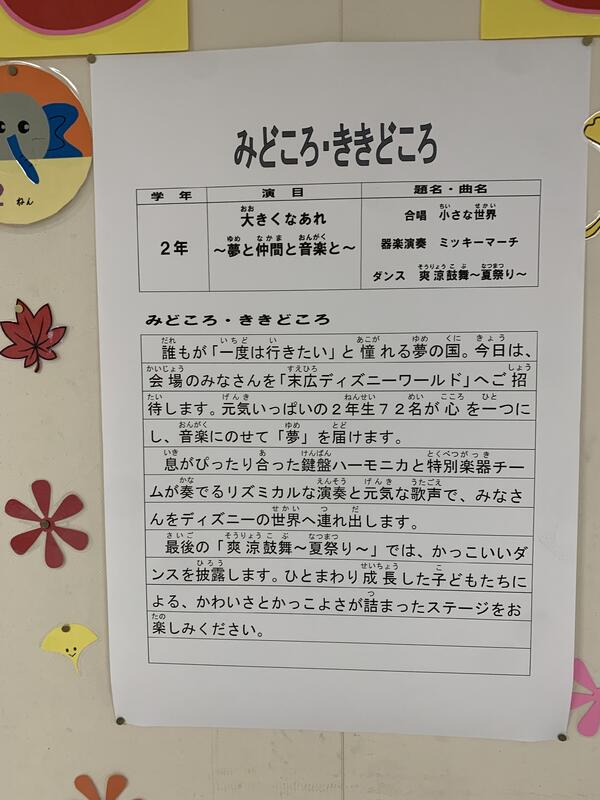 みどころ・ききどころ
学年 演目 題名・曲名
2年
大きくなあれ
~夢と仲間と音楽と~
合唱 小さな世界
器楽演奏 ミッキーマーチ
ダンス 爽涼鼓舞~夏祭り~
みどころ・ききどころ
誰もが「一度は行きたい」と憧れる夢の国。今日は、
会場のみなさんを「末広ディズニーワールド」へご招
待します。元気いっぱいの2年生72名が心を一つに
し、音楽にのせて「夢」を届けます。
息がぴったり合った鍵盤ハーモニカと特別楽器チー
ムが奏でるリズミカルな演奏と元気な歌声で、みなさ
んをディズニーの世界へ連れ出します。
最後の「爽涼鼓舞~夏祭り~」では、かっこいいダ
ンスを披露します。ひとまわり成長した子どもたちに
よる、かわいさとかっこよさが詰まったステージをお
楽しみください。
2ねん